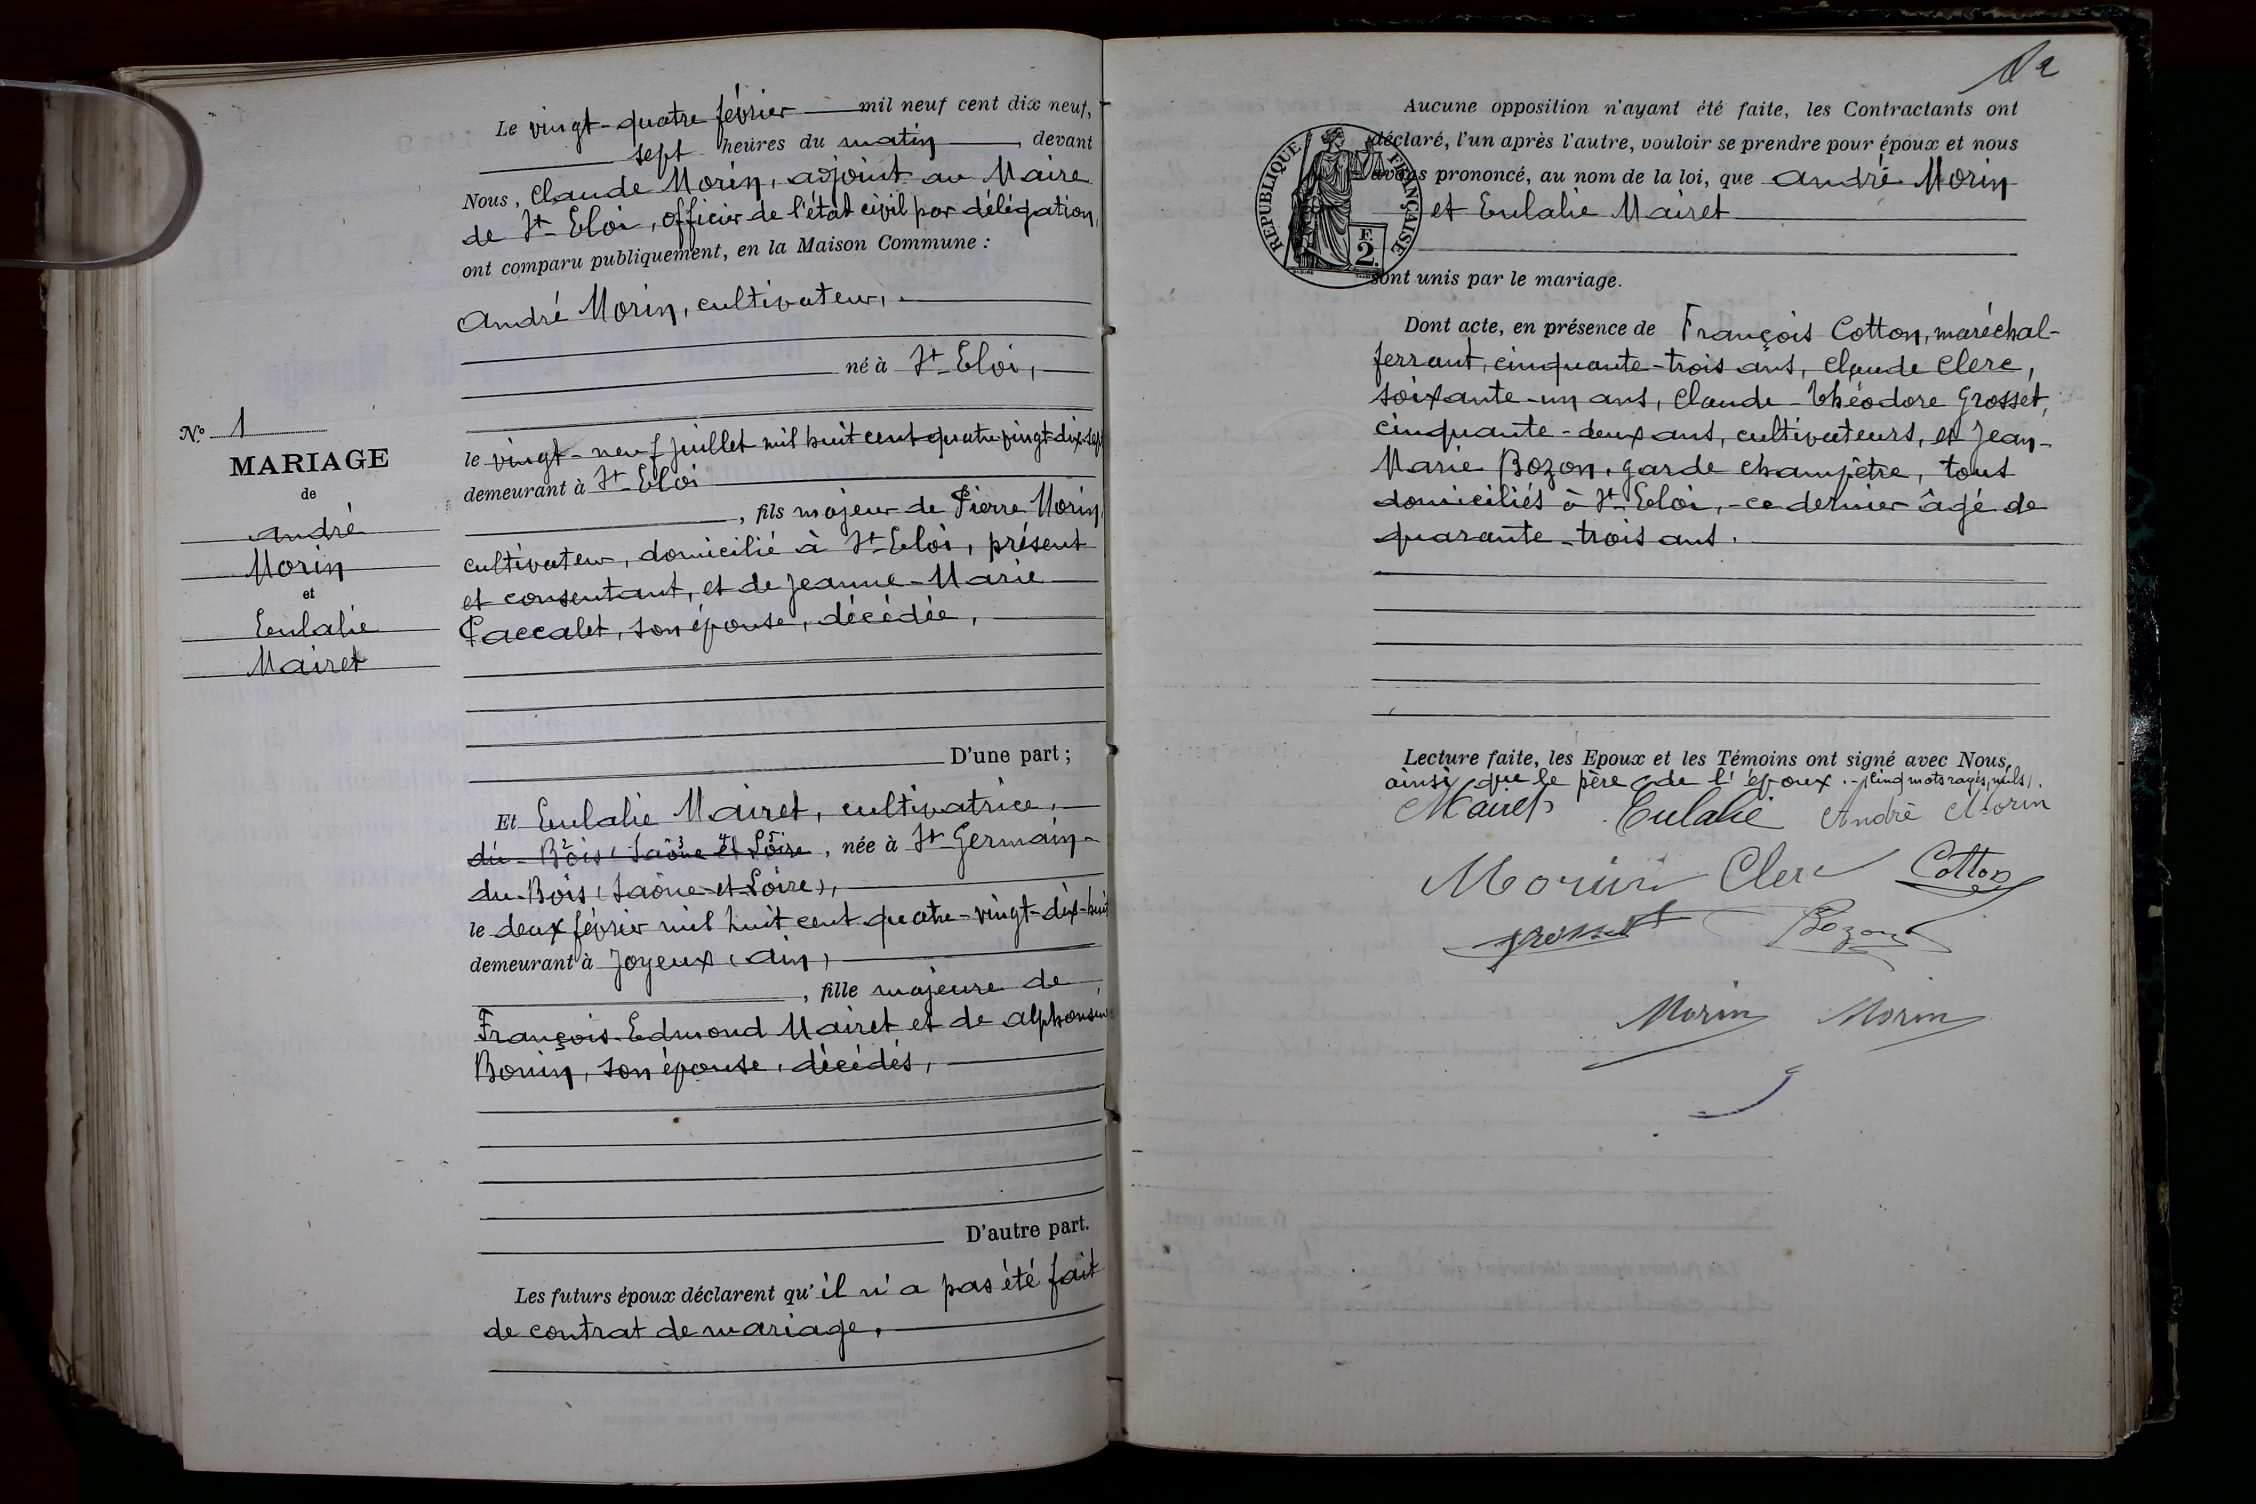 Le vingt-quatre février mil neuf cent dix neuf,
sept heures du matin, devant
Nous, Claude Morin, adjoint au Maire
de St-Eloi, officier de l'état civil par délégation,
ont comparu publiquement, en la Maison Commune :
André Morin, cultivateur,
né à St-Eloi,
le vingt-neuf juillet mil huit cent quatre vingt-dix-sept
demeurant à St-Eloi
, fils majeur de Pierre Morin,
cultivateur, domicilié à St-Eloi, présent
et consentant, et de Jeanne-Marie
Paccalet, son épouse, décédée,
D'une part ;
N.° 1
MARIAGE
de
André
Morin
et
Eulalie
Mairet
Et Eulalie Mairet, cultivatrice,
du-Bois (Saône et Loire, née à St-Germain-
du-Bois (Saône-et-Loire),
le deux février mil huit cent quatre-vingt-dix-huit
demeurant à Joyeux (Ain)
, fille majeure de
François-Edmond Mairet et de Alphonsine
Bonin, son épouse, décédés,
D'autre part.
Les futurs époux déclarent qu'il n'a pas été fait
de contrat de mariage.
Aucune opposition n'ayant été faite, les Contractants ont
déclaré, l'un après l'autre, vouloir se prendre pour époux et nous
avons prononcé, au nom de la loi, que André Morin
et Eulalie Mairet
sont unis par le mariage.
RÉPUBLIQUE FRANÇAISE
F.
2.
Dont acte, en présence de François Cotton, maréchal-
ferrant, cinquante-trois ans, Claude Clerc,
soixante-un ans, Claude-Théodore Grosset,
cinquante-deux ans, cultivateurs, et Jean-
Marie Bozon, garde champêtre, tous
domiciliés à St-Eloi, - ce dernier âgé de
quarante-trois ans.
Lecture faite, les Epoux et les Témoins ont signé avec Nous,
ainsi que le père de l'époux. - (cinq mots rayés, nuls).
Mairet Eulalie André Morin
Morin Clerc Cotton
Grosset Bozon
Morin Morin